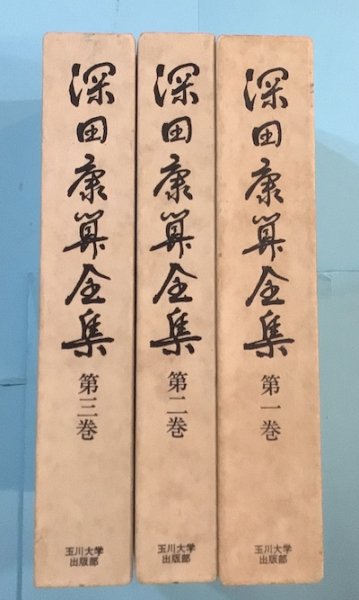 深田康算全集
第一巻
玉川大学
出版部
深田康算全集
第二巻
玉川大学
出版部
深田康算全集
第三巻
玉川大学
出版部